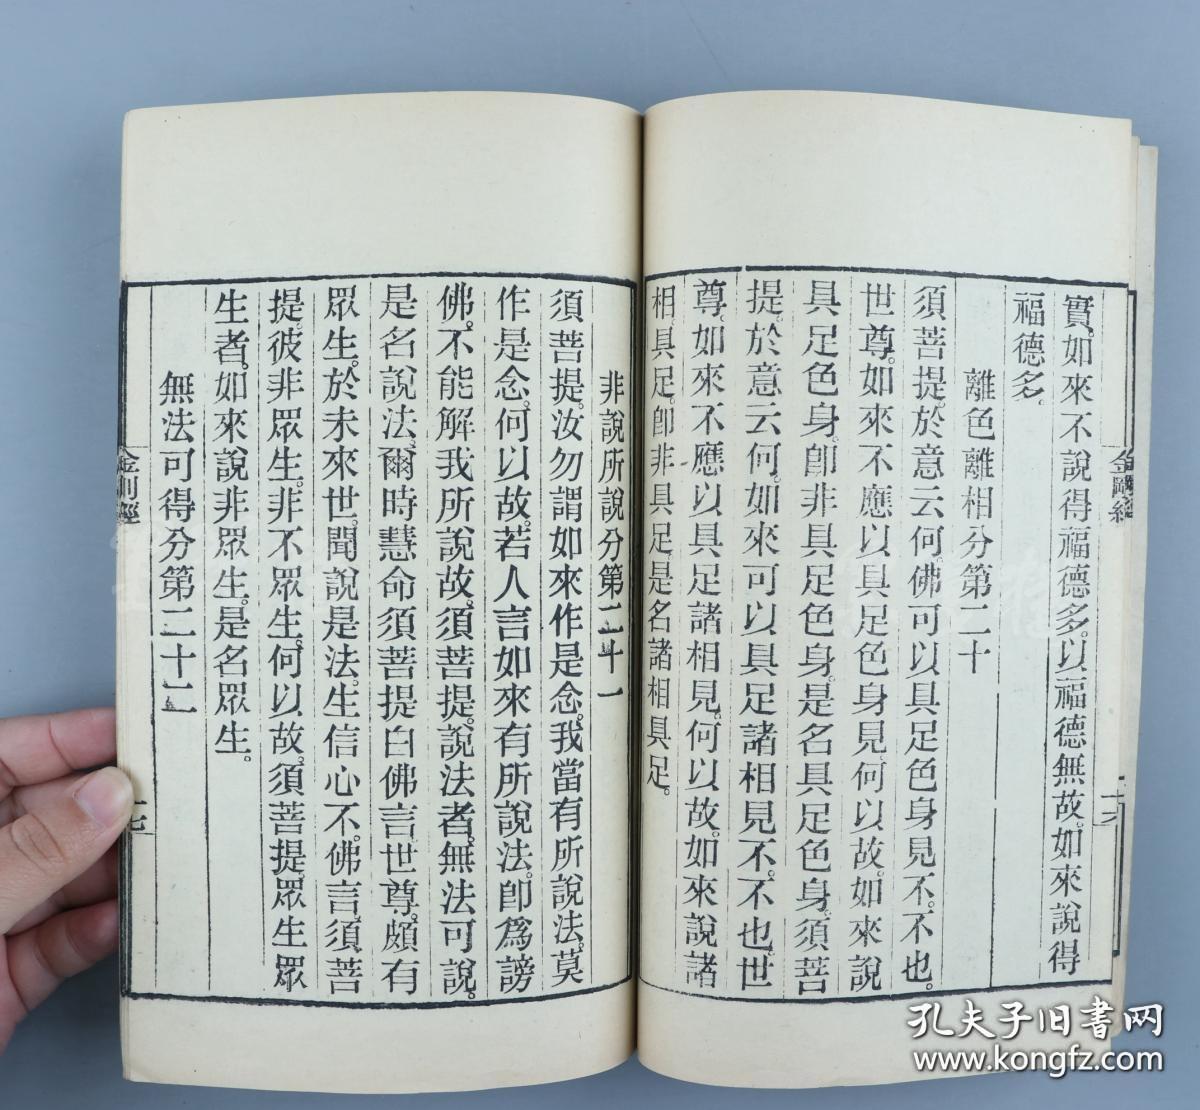 實。如來不說得福德多。以福德無故。如來說得
福德多。
離色離相分第二十
須菩提。於意云何。佛可以具足色身見不。不也。
世尊。如來不應以具足色身見。何以故。如來說
具足色身。卽非具足色身。是名具足色身。須菩
提。於意云何。如來可以具足諸相見不。不也。世
尊。如來不應以具足諸相見。何以故。如來說諸
相具足。卽非具足。是名諸相具足。
非說所說分第二十一
須菩提。汝勿謂如來作是念。我當有所說法。莫
作是念。何以故。若人言如來有所說法。卽爲謗
佛。不能解我所說故。須菩提。說法者。無法可說。
是名說法。爾時慧命須菩提白佛言。世尊。頗有
眾生。於未來世。聞說是法。生信心不。佛言。須菩
提。彼非眾生。非不眾生。何以故。須菩提。眾生眾
生者。如來說非眾生。是名眾生。
無法可得分第二十二
金剛經
孔夫子旧書网
www.kongfz.com